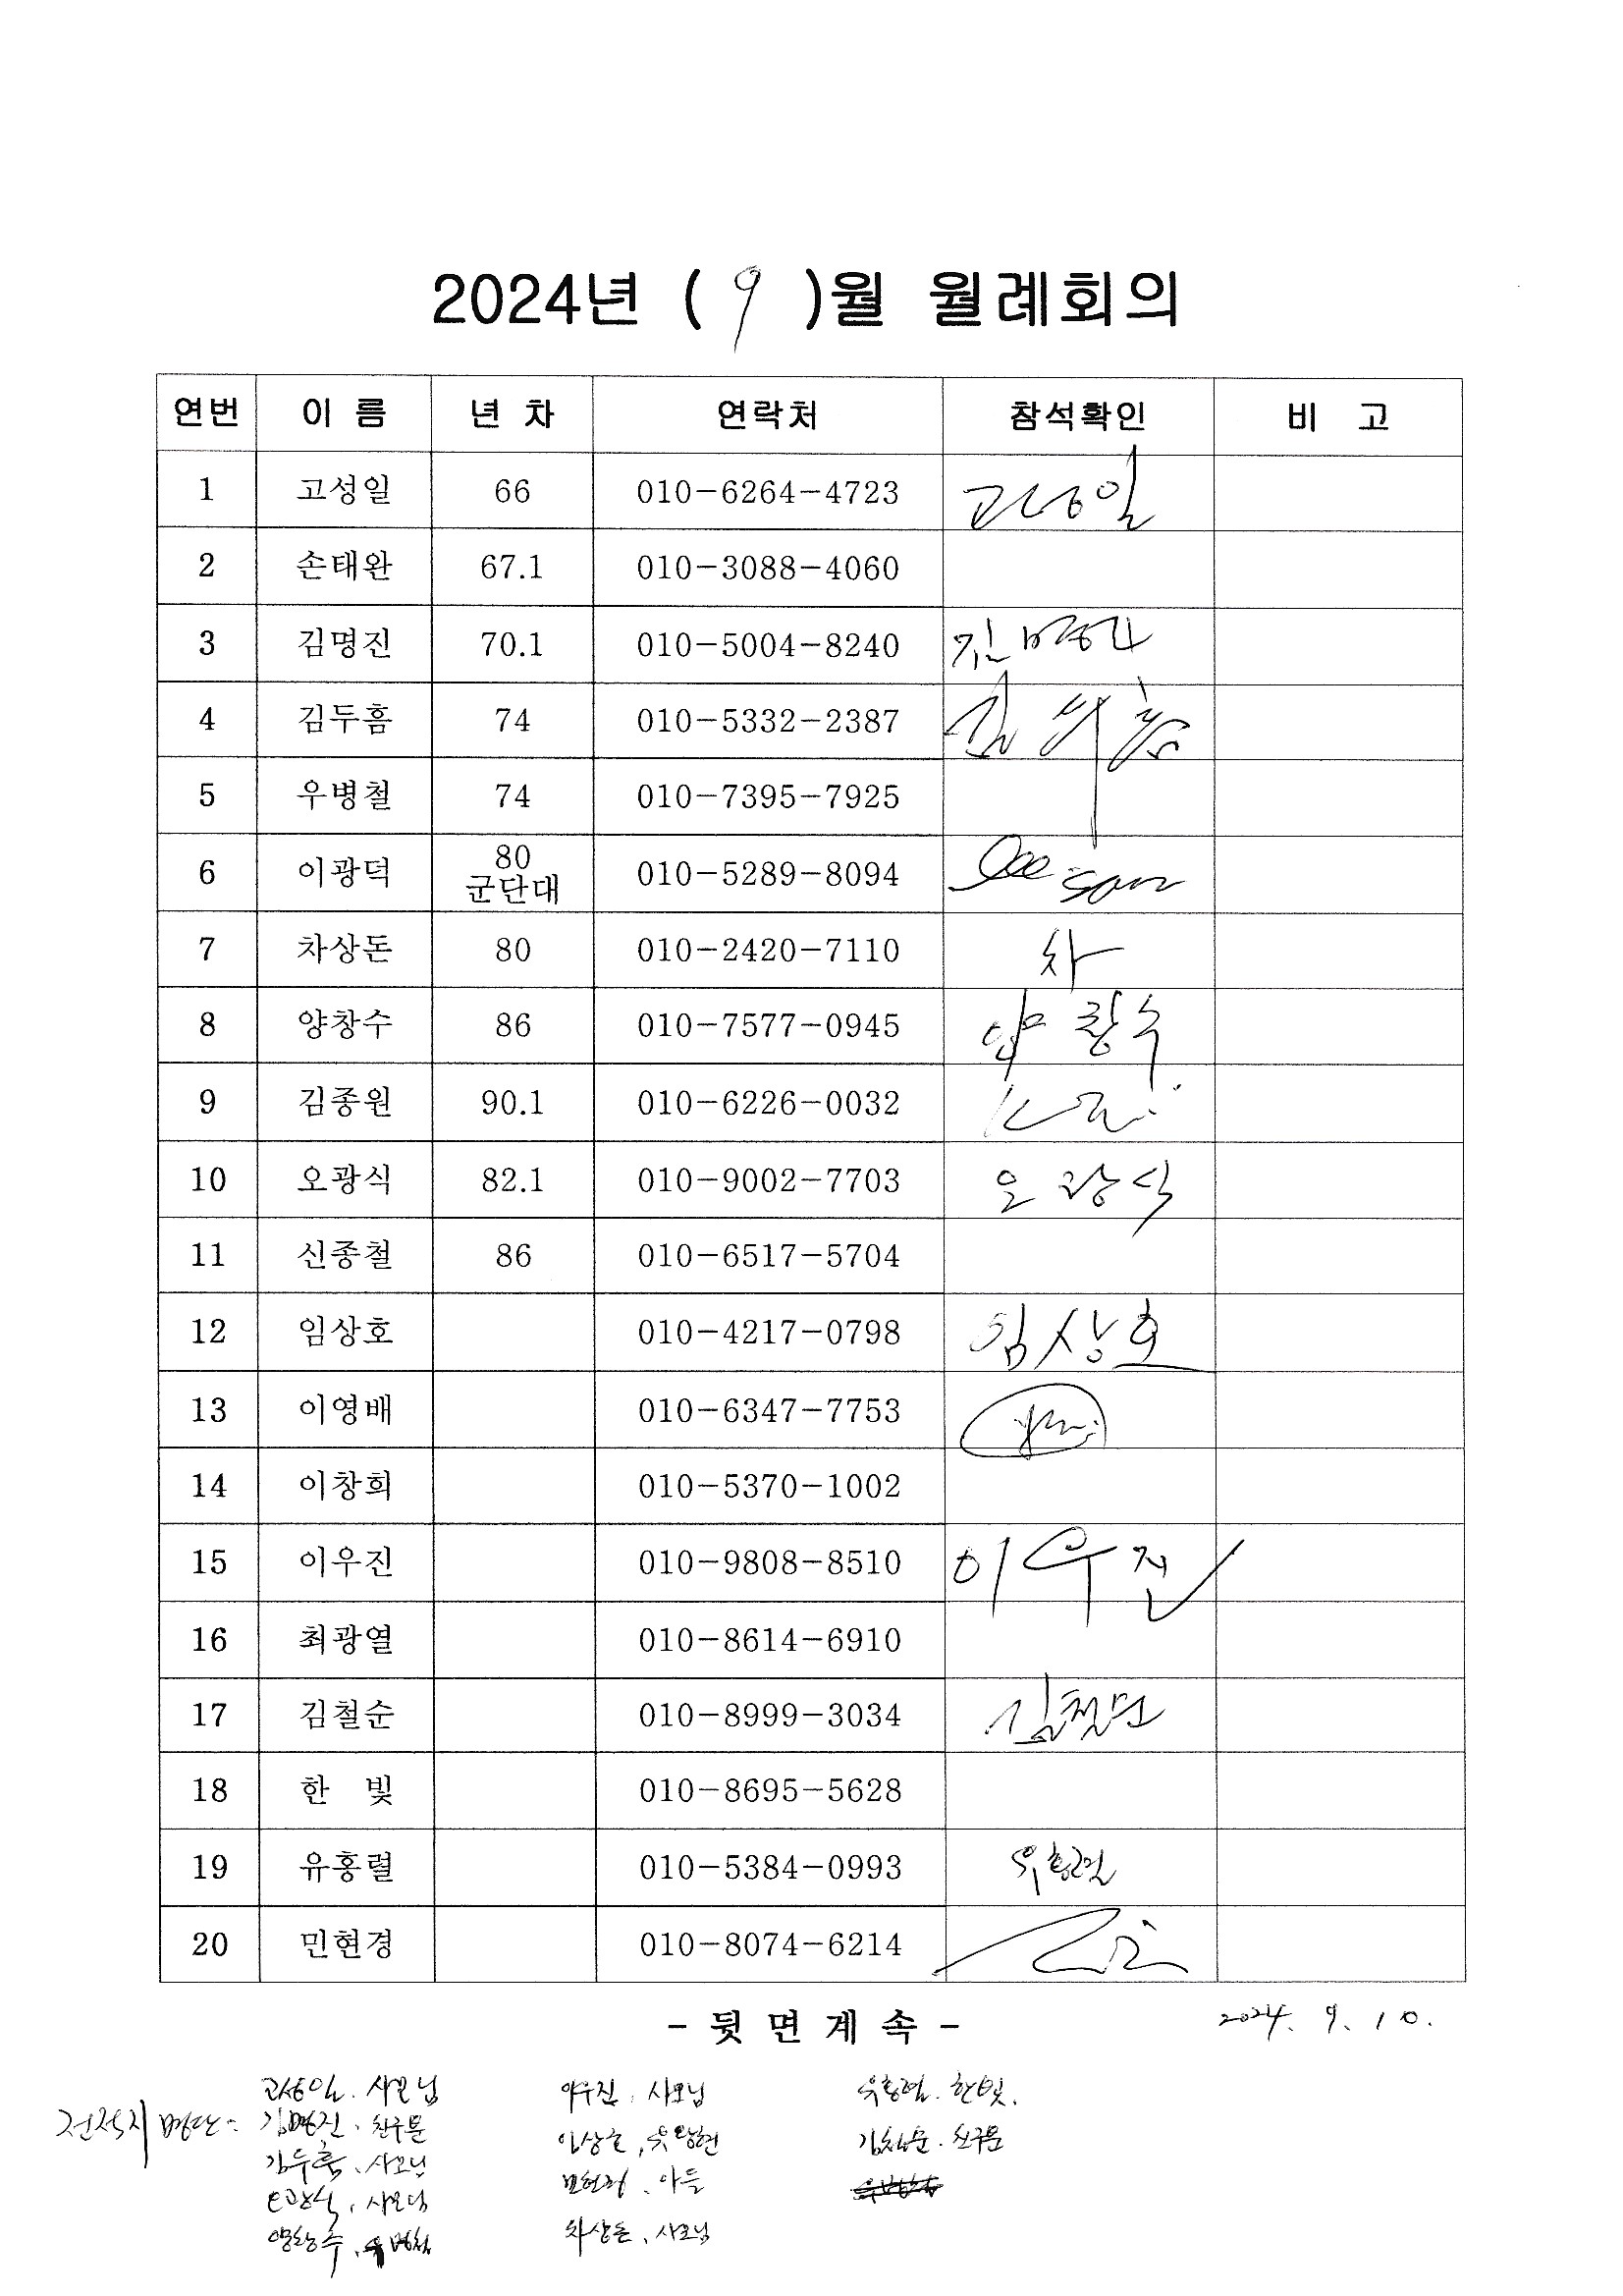 2024년 ( 9 )월 월례회의
연번 이 름 년 차 연락처 참석확인 비 고
1 고성일 66 010-6264-4723 고성일
2 손태완 67.1 010-3088-4060
3 김명진 70.1 010-5004-8240 김명진
4 김두흠 74 010-5332-2387 김두흠
5 우병철 74 010-7395-7925
6 이광덕 80 군단대 010-5289-8094
7 차상돈 80 010-2420-7110 차
8 양창수 86 010-7577-0945 양창수
9 김종원 90.1 010-6226-0032
10 오광식 82.1 010-9002-7703 오광식
11 신종철 86 010-6517-5704
12 임상호 010-4217-0798 임상호
13 이영배 010-6347-7753
14 이창희 010-5370-1002
15 이우진 010-9808-8510 이우진
16 최광열 010-8614-6910
17 김철순 010-8999-3034 김철순
18 한 빛 010-8695-5628
19 유홍렬 010-5384-0993 유홍렬
20 민현경 010-8074-6214
- 뒷 면 계 속 -
2024. 9. 10.
전적지 명단:
고성일. 사모님
김명진. 친구분
김두흠. 사모님
오광식. 사모님
양창수. 우병철
이우진. 사모님
임상호,
민현경. 아들
차상돈. 사모님
유홍렬. 한빛.
김철순. 친구분